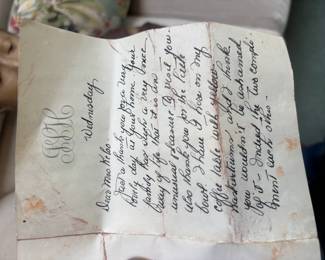 Wednesday
Dear Mrs
Just a thank you for a very
lovely day at your home. Your
family has such a very
way of life that it is an
unusual pleasure to visit you -
also thank you for the
bowl. I have it here on my
coffee table with yellow
nasturtiums and I think
you wouldn't be ashamed
of it - the two compli-
ment each other -